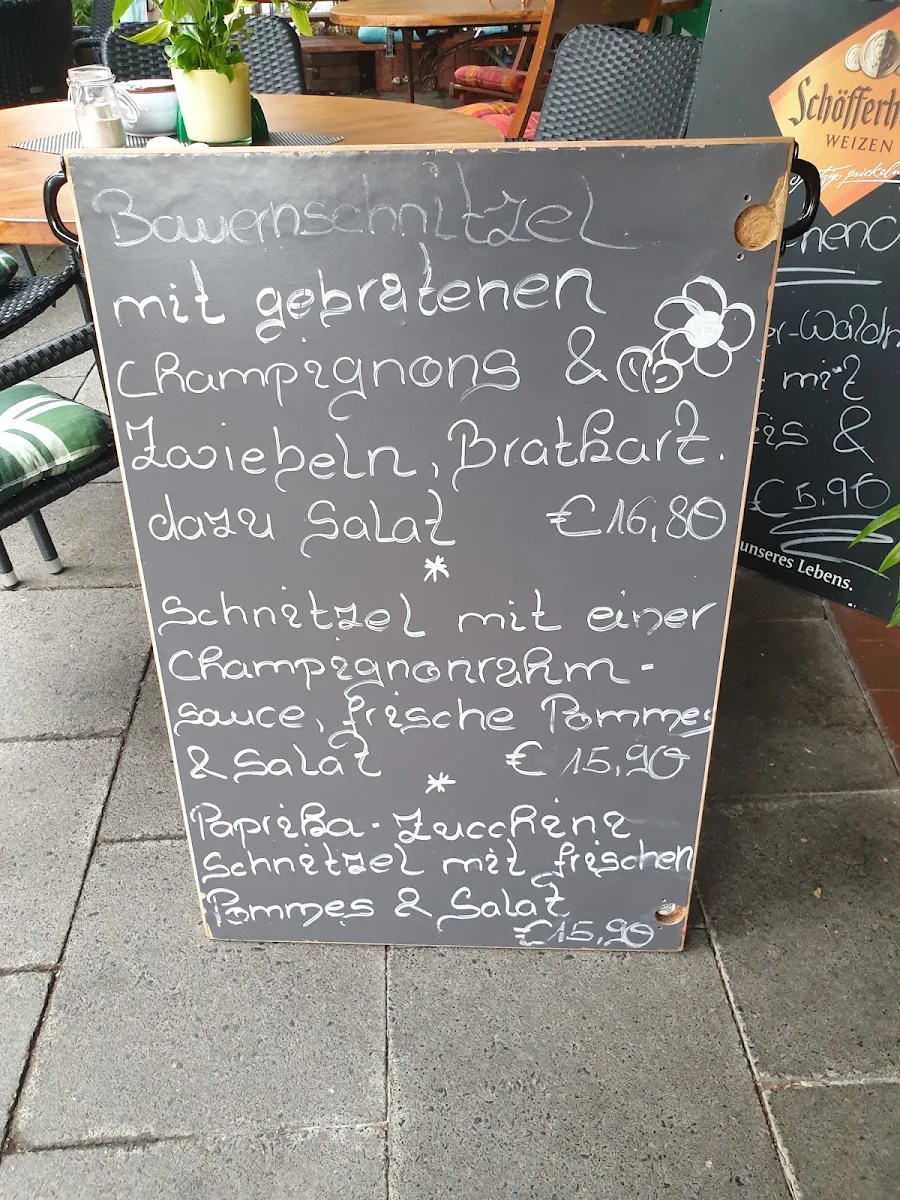 Bauernschnitzel
mit gebratenen
Champignons &
Zwiebeln, Bratkart.
dazu Salat €16,80
*
Schnitzel mit einer
Champignonrahm-
sauce, frische Pommes
& Salat € 15,90
*
Paprika-Zucchini
Schnitzel mit frischen
Pommes & Salat
€15,90
Schöfferh
WEIZEN
mit
&
€5,90
unseres Lebens.